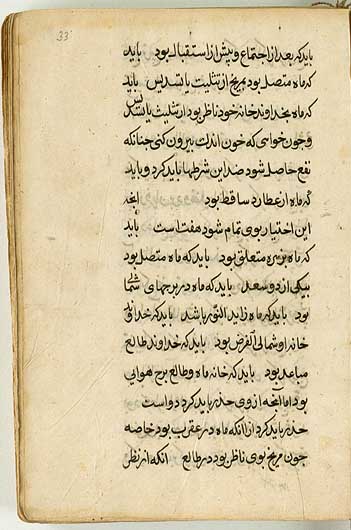 33
باید که بعد از اجتماع و پیش از استقبال بود باید
که ماه متصل بود بمریخ از تثلیث یا تسدیس باید
که ماه بخداوند خانه خود ناظر بود از تثلیث یا تسدیس
و چون خواهی که خون اندک بیرون کنی چنانکه
نفع حاصل شود ضد این شرطها باید کرد و باید
که ماه از عطارد ساقط بود آنچه
این اختیار بوی تمام شود هفت است باید
که ماه بزهره متعلق بود باید که ماه متصل بود
بیکی از دو سعد باید که ماه در برجهای شمالی
بود باید که ماه زاید النور باشد باید که خداوند
خانه او شمالی العرض بود باید که خداوند طالع
صاعد بود باید که خانه ماه و طالع برج هوایی
بود اما آنچه از وی حذر باید کرد دو است
حذر باید کرد از آنکه ماه در عقرب بود خاصه
چون مریخ بوی ناظر بود در طالع آنکه از نظر